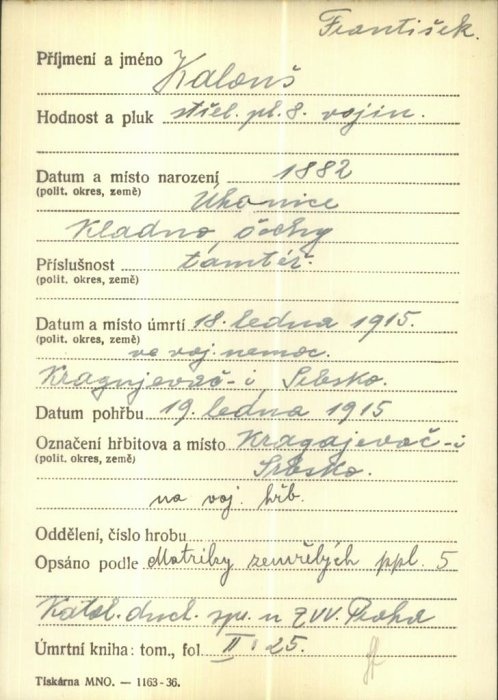 František.
Příjmení a jméno Kalouš
Hodnost a pluk střel. pl. 8. vojín.
Datum a místo narození 1882
(polit. okres, země) Úhonice
Kladno Čechy
Příslušnost tamtéž.
(polit. okres, země)
Datum a místo úmrtí 18. ledna 1915.
(polit. okres, země) ve voj. nemoc.
Kragujevač-i, Srbsko.
Datum pohřbu 19. ledna 1915
Označení hřbitova a místo Kragujevač-i
(polit. okres, země) Srbsko.
na voj. hřb.
Oddělení, číslo hrobu
Opsáno podle Matriky zemřelých ppl. 5
Katol. duch. spr. u ZVV. Praha
Úmrtní kniha: tom., fol. II 25.
Tiskárna MNO. — 1163-36.